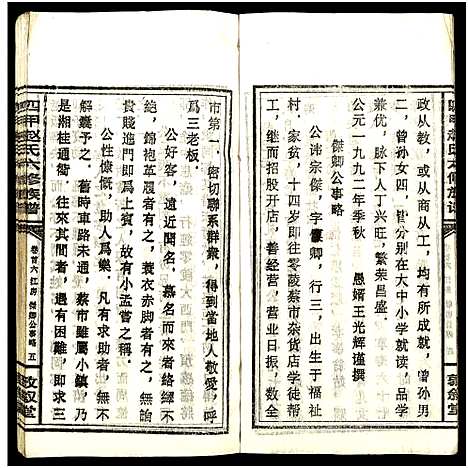 政从教，或从商从工，均有所成就，曾孙男
二，曾孙女四，皆分别在大中小学就读，品学
兼优，脉下人丁兴旺，繁荣昌盛。
公元一九九二年季秋　愚婿王光辉谨撰
傑卿公事略
公讳宗傑，字傑卿，行三，出生于福祉
村，家贫，十四岁即往零陵蔡市杂货店学
徒，继而招股开店，善经营，营业日振，数全
市第一，密切聯系群衆，得到當地人敬愛，呼
爲三老板。
公好客，遠近聞名，慕名而來者絡繹不
絶，錦袍英履者有之，蓑衣赤脚者有之，無論
貴賤進門即爲上賓，故有小孟嘗之稱。
公性溫和，助人爲樂，凡有求助者，無不
解囊予之。舊時車路未通，蔡市雖屬小鎮，乃
是湘桂通衢，往來其間者，遇困難，即求三
四甲赵氏六修族譜
卷首六江房　傑卿公事略　五
敦叙堂